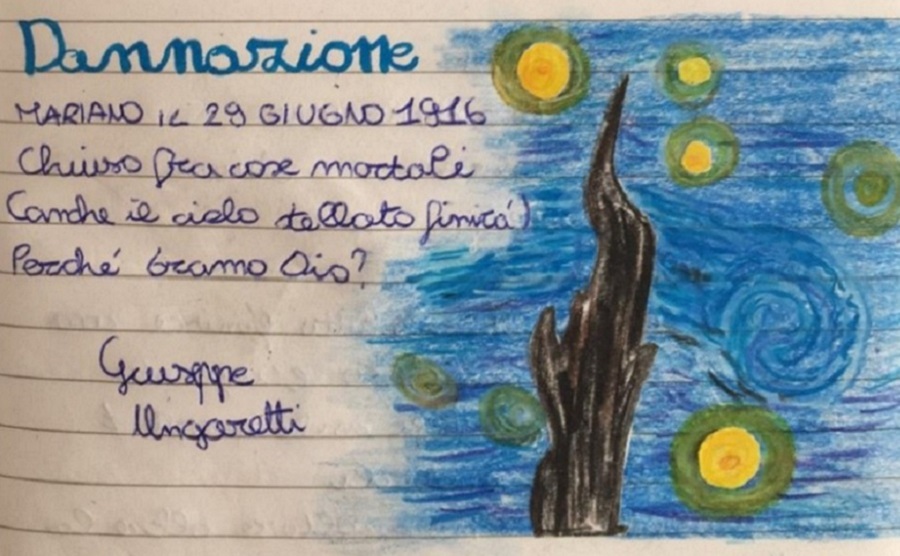 Dannazione
MARIANO IL 29 GIUGNO 1916
Chiuso fra cose mortali
(anche il cielo stellato finirà)
Perché bramo Dio?
Giuseppe
Ungaretti